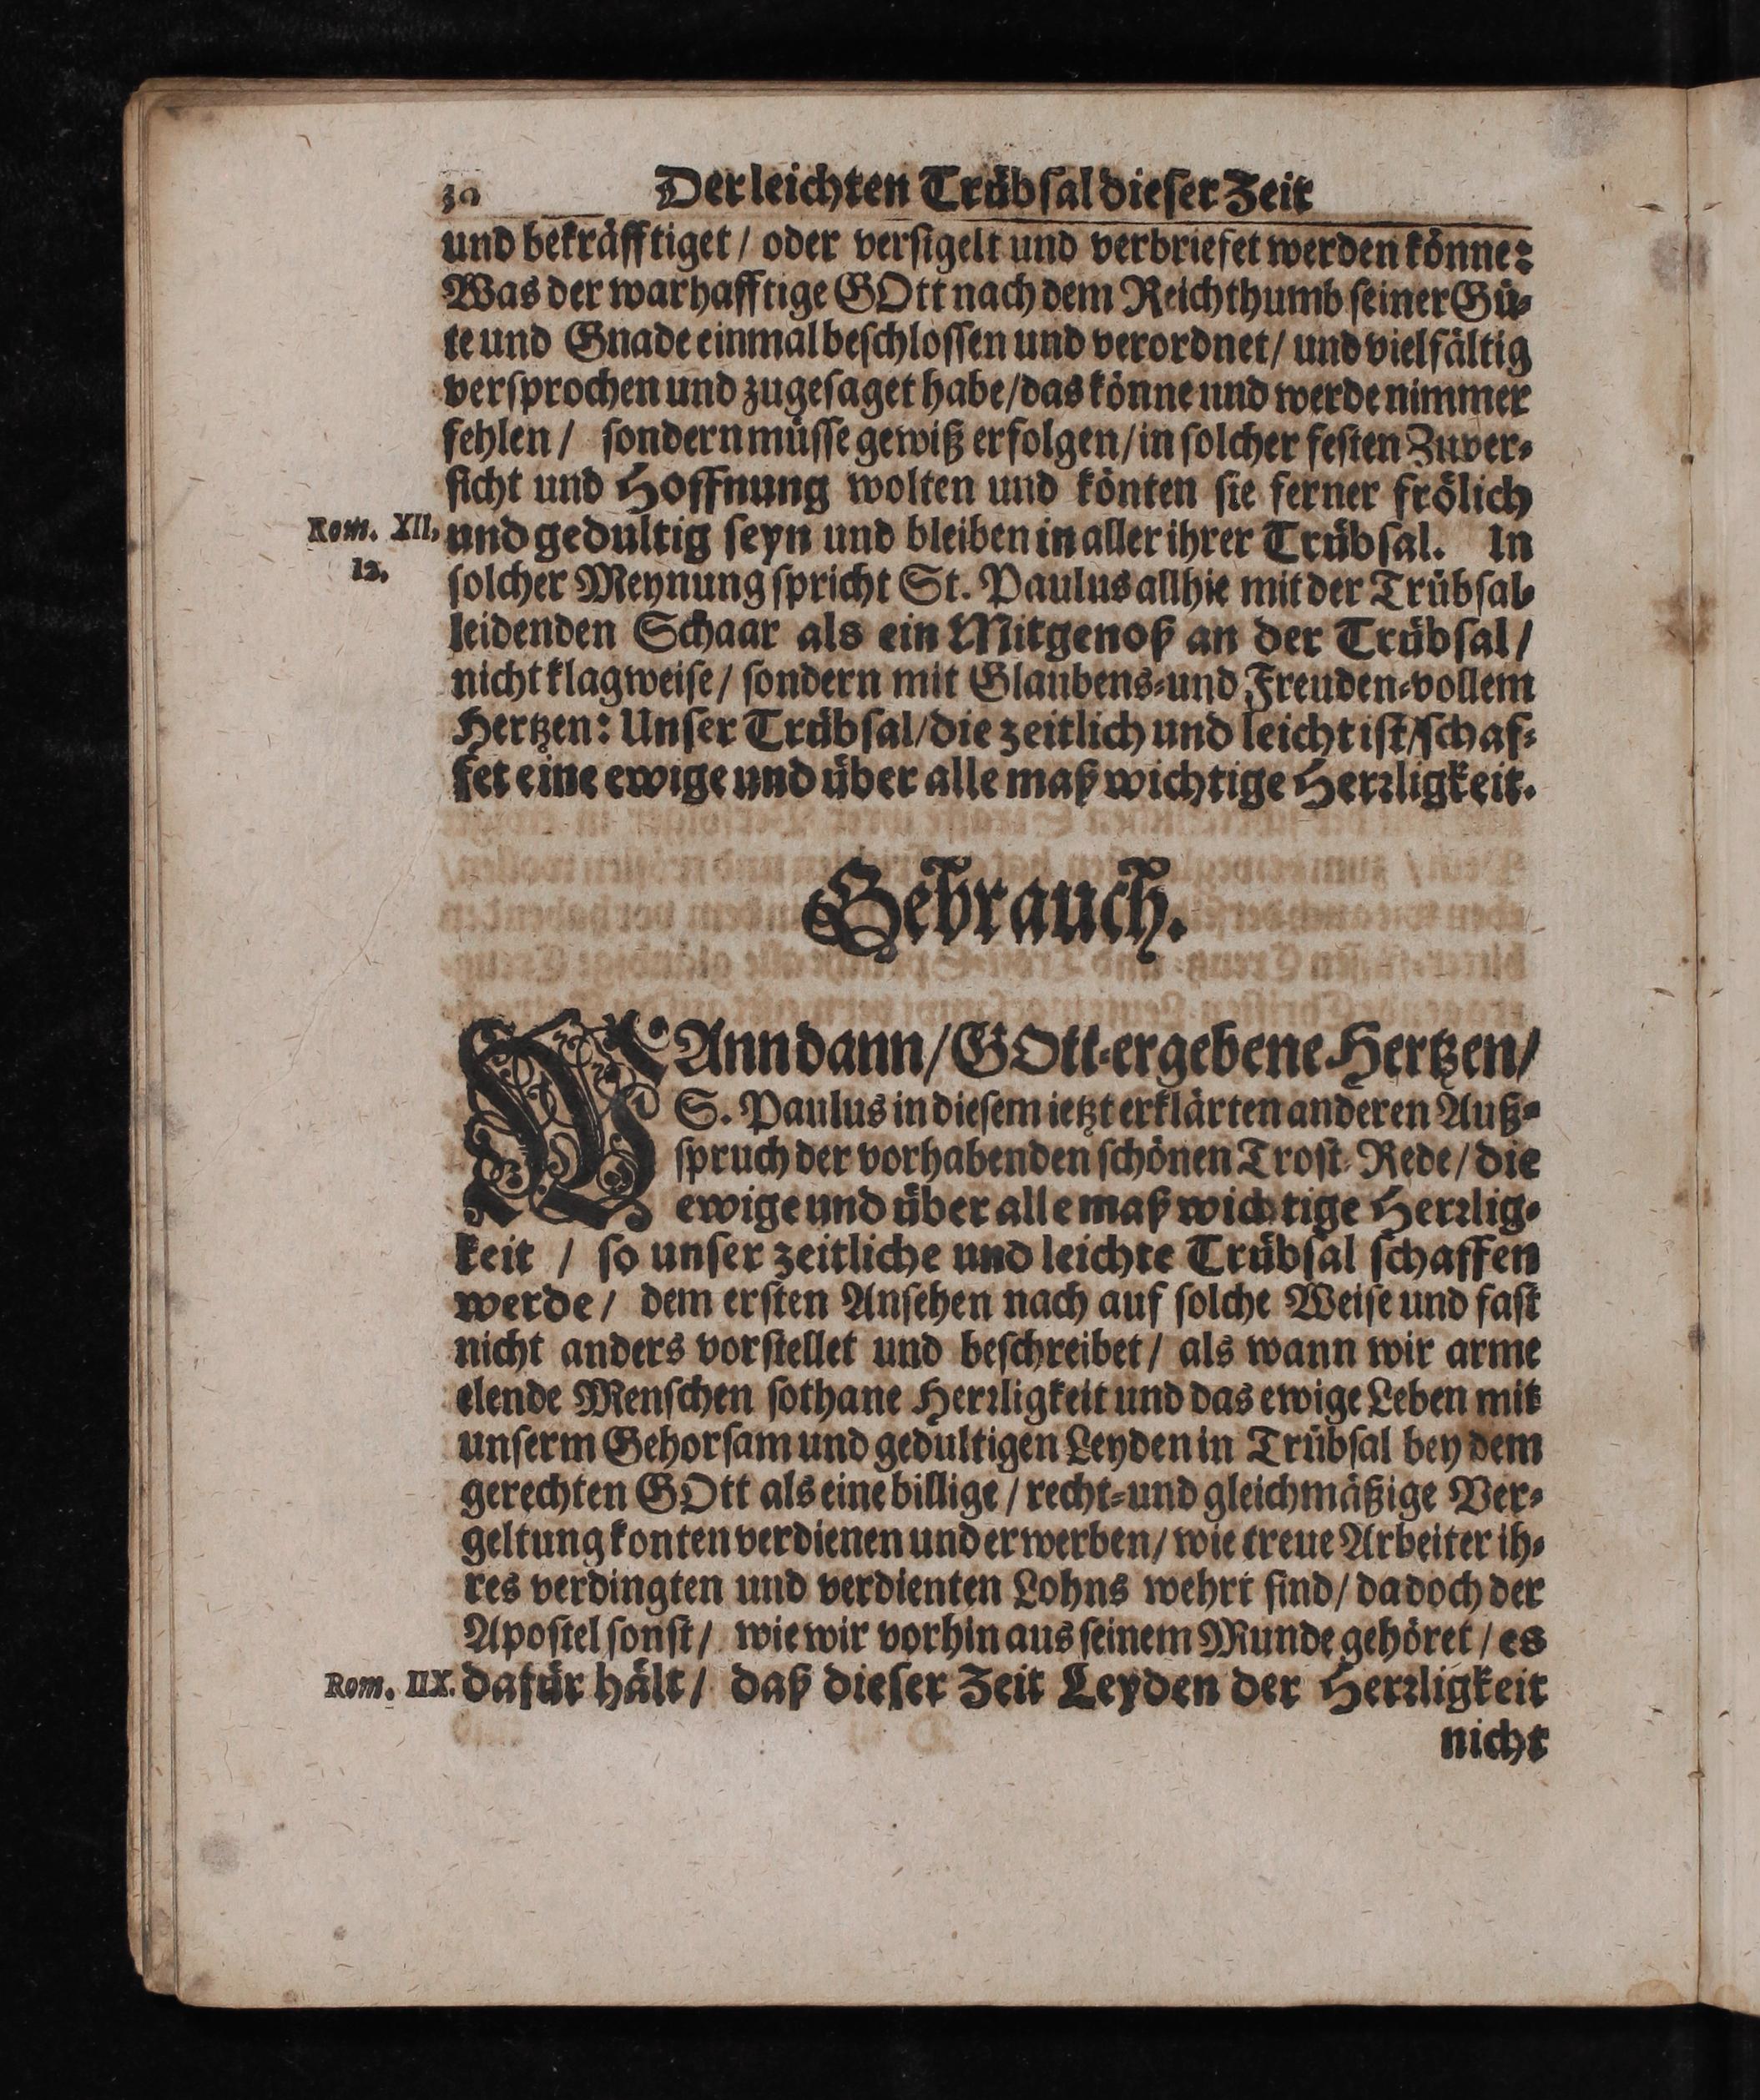 30 Der leichten Trübsal dieser Zeit
und bekräfftiget / oder versigelt und verbriefet werden könne:
Was der warhafftige GOtt nach dem Reichthumb seiner Gü-
te und Gnade einmal beschlossen und verordnet / und vielfältig
versprochen und zugesaget habe / das könne und werde nimmer
fehlen / sondern müsse gewiß erfolgen / in solcher festen Zuver-
sicht und Hoffnung wolten und könten sie ferner frölich
Rom. XII, und gedultig seyn und bleiben in aller ihrer Trübsal. In
12. solcher Meynung spricht St. Paulus allhie mit der Trübsal-
leidenden Schaar als ein Mitgenoß an der Trübsal /
nicht klagweise / sondern mit Glaubens- und Freuden-vollem
Hertzen: Unser Trübsal / die zeitlich und leicht ist / schaf-
fet eine ewige und über alle maß wichtige Herrligkeit.
Gebrauch.
WAnn dann / GOtt-ergebene Hertzen /
S. Paulus in diesem ietzt erklärten anderen Auß-
spruch der vorhabenden schönen Trost-Rede / die
ewige und über alle maß wichtige Herrlig-
keit / so unser zeitliche und leichte Trübsal schaffen
werde / dem ersten Ansehen nach auf solche Weise und fast
nicht anders vorstellet und beschreibet / als wann wir arme
elende Menschen sothane Herrligkeit und das ewige Leben mit
unserm Gehorsam und gedultigen Leyden in Trübsal bey dem
gerechten GOtt als eine billige / recht- und gleichmäßige Ver-
geltung konten verdienen und erwerben / wie treue Arbeiter ih-
res verdingten und verdienten Lohns wehrt sind / da doch der
Apostel sonst / wie wir vorhin aus seinem Munde gehöret / es
Rom. IIX. dafür hält / daß dieser Zeit Leyden der Herrligkeit
nicht